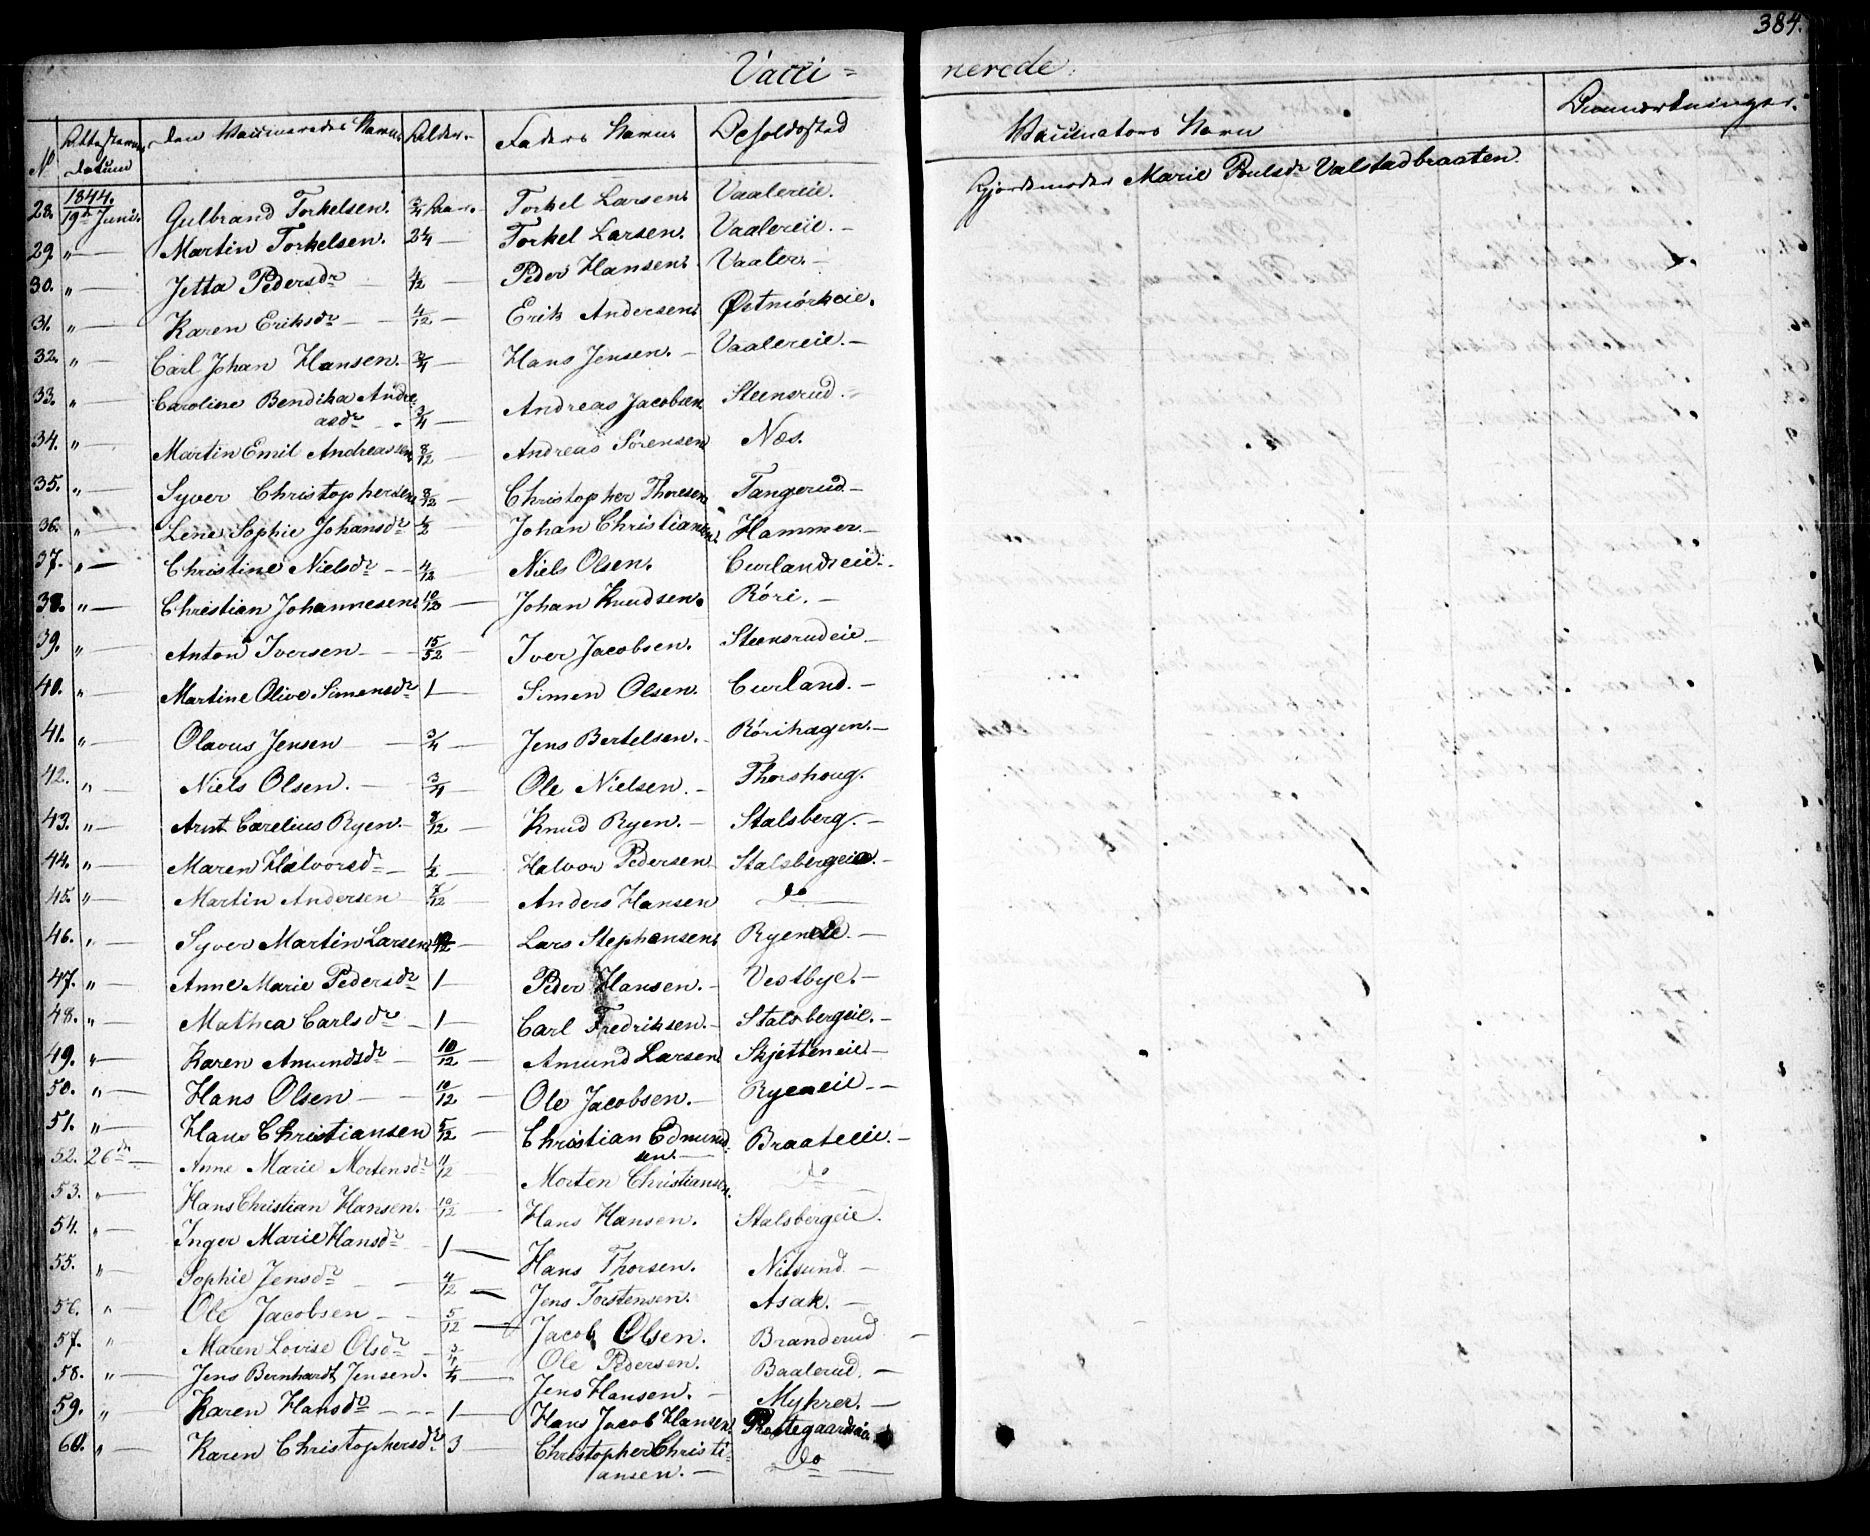 384.
Vacci= nerede.
No Attestens datum den Vaccineredes Navn. Alder. Faders Navn Opholdssted Vaccinators Navn Anmærkninger.
1844.
28. 19de Juni. Gulbrand Torkelsen. 3/4 Aar. Torkel Larsen. Vaalereie. Gjordemoder Marie Poulsdr Valstadbraaten.
29. " — Martin Torkelsen. 2 1/4 — Torkel Larsen. Vaalereie. —
30. " — Jetta Pedersdr 4/12 — Peder Hansen. Vaaler. —
31. " — Karen Eriksdr — 4/12 — Erik Andersen.
32. " — Carl Johan Hansen. 3/4 — Hans Jensen. — Vaalereie. —
33. " — Caroline Bendika Andre
asdr 3/4 — Andreas Jacobsen Steensrud. —
34. " — Martin Emil Andreassen 8/12 — Andreas Sörensen Næs.
35. " — Syver Christophersen 8/12 — Christopher Thoresen Tangerud —
36. " — Lene Sophie Johansdr 1/2 — Johan Christiansen. Hammer —
37. " — Christine Nielsdr — 4/12 — Niels Olsen. Curlandseie. —
38. " — Christian Johannesen. 10/12 — Johan Knudsen. Röri. —
39. " — Anton Iversen — 15/52 — Iver Jacobsen. Steensrudeie —
40. " Martine Olive Simensdr 1 — Simen Olsen. Curland. —
41. " — Olavus Jensen — 3/4 — Jens Bertelsen. — Rörihagen. —
42. " Niels Olsen. — 3/4 — Ole Nielsen. — Thorshoug.
43. " — Arnt Carelius Ryen. — 8/12 — Knud Ryen. — Stalsberg. —
44. " — Maren Halvorsdr — 1/2 — Halvor Pedersen Stalsbergeie. —
45. " — Martin Andersen 7/12 — Anders Hansen do —
46. " — Syver Martin Larsen — Lars Stephansen. Ryeneie. —
47. " — Anne Marie Pedersdr 1 — Peder Hansen. — Vestbye. —
48. " — Mathea Carlsdr — 1 — Carl Fredriksen. — Stalsbergeie. —
49. " — Karen Amundsdr — 10/12 — Amund Larsen Skjetteneie. —
50. " — Hans Olsen — 10/12 — Ole Jacobsen. — Ryeneie. —
51. " — Hans Christiansen 5/12 — Christian Edmund
sen. — Braateeie. —
52. 26de — Anne Marie Mortensdr 11/12 — Morten Christiansen. do —
53. " — Hans Christian Hansen. 10/12 — Hans Hansen. Stalsbergeie.
54. " — Inger Marie Hansdr 1 — Hans Thorsen. Nitsund —
55. " — Sophie Jensdr — 4/12 — Jens Torstensen. Asak. —
56. " Ole Jacobsen — 5/12 — Jacob Olsen. Branderud —
57. " Maren Lovise Olsdr — 3/4 — Ole Pedersen. Baalerud. —
58. " — Jens Bernhardt Jensen. 1/4 — Jens Hansen. — Mykrer. —
59. " Karen Hansdr — 1 — Hans Jacob Hansen.
60. " — Karen Christophersdr 3 — Christopher Christi=
ansen. — do —